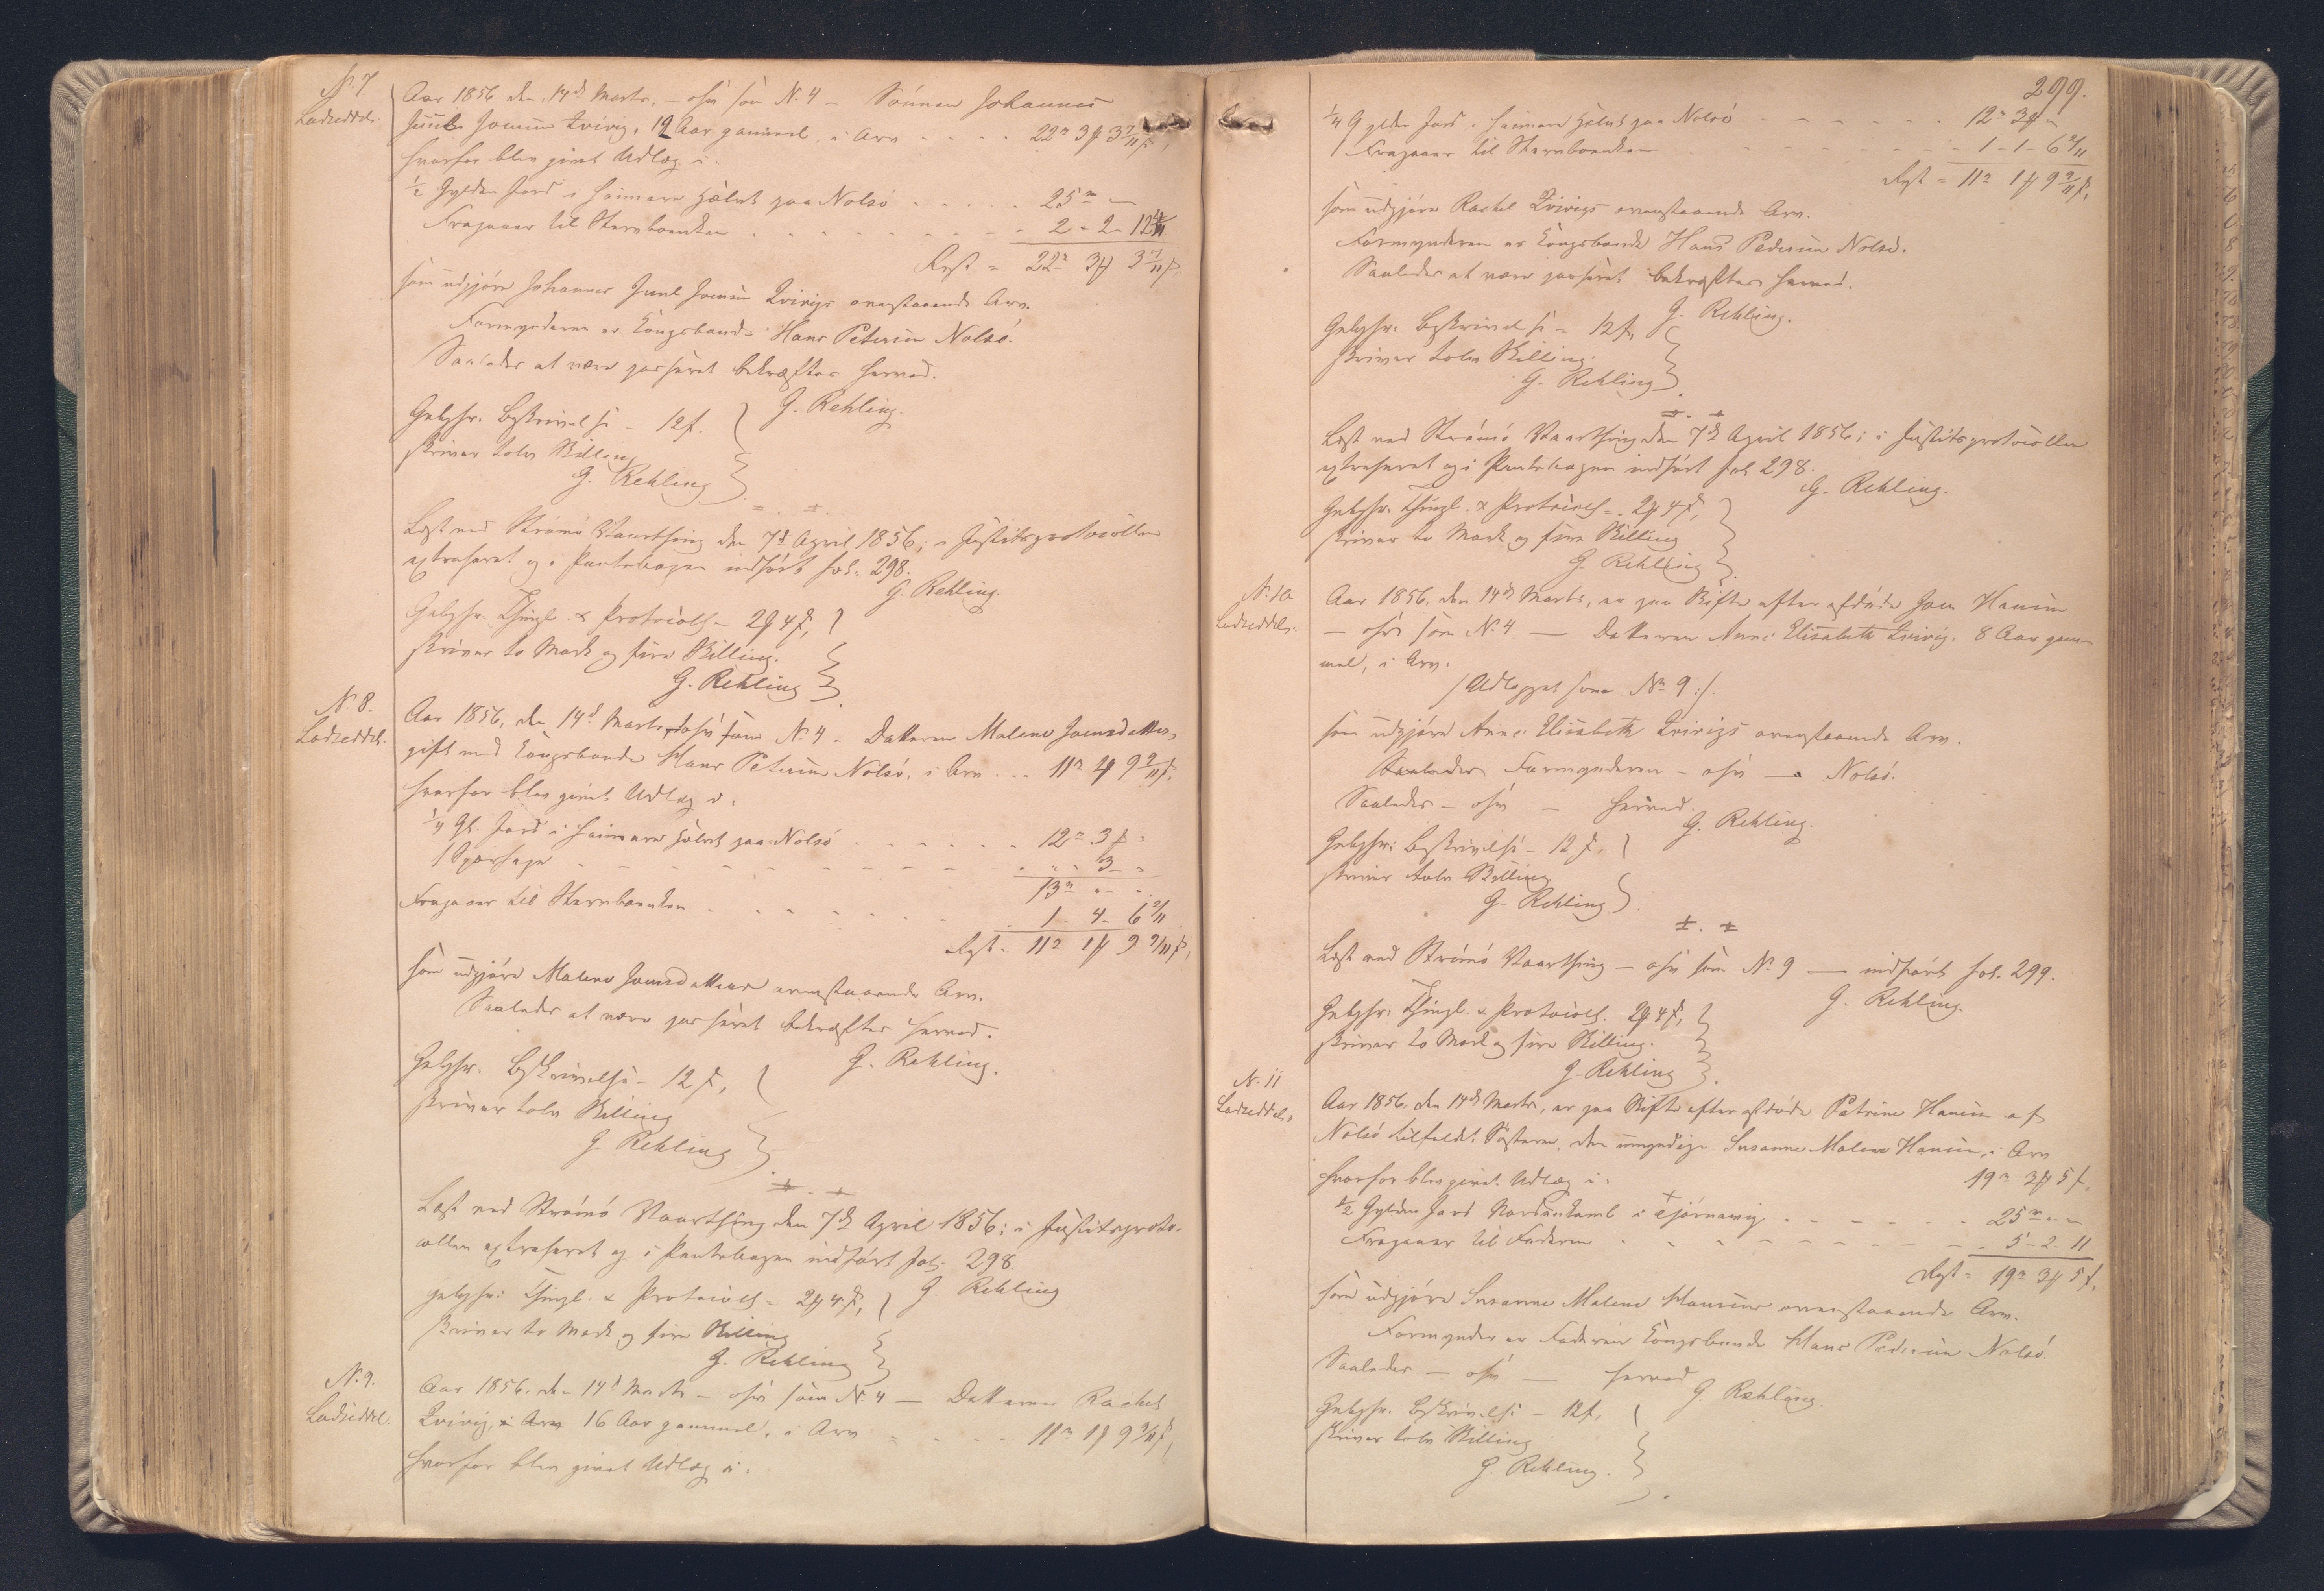 N. 7.
Lodseddel.
Aar 1856 den 14d Marts, – osv som N. 4 – Sønnen Johannes
Juul Joensen Qvivig, 12 Aar gammel, i Arv . . . . 22r 3ß 3 7/11 f,
hvorfor blev givet Udlæg i:
1/2 Gylden Jord i heimare Hælvt paa Nolsø . . . . . 25r –
Fragaaer til Stervboenken . . . . . . . . . 2 – 2 – 12 4/11
Rest = 22r 3ß 3 7/11 f,
som udgjøre Johannes Juul Joensen Qvivigs ovenstaaende Arv.
Formynderen er Kongsbonde Hans Petersen Nolsø.
Saaledes at være passeret bekræftes herved.
G. Rehling.
Gebyhr. Beskrivelse – 12 f.
skriver tolv Skilling
G. Rehling
Læst ved Strømø Vaarthing den 7d April 1856; i Justitsprotocollen
extraheret og i Pantebogen indført fol. 298.
G. Rehling.
Gebyhr. Thingl. & Protocoll – 2ß 4 f,
skriver to Mark og fire Skilling.
G. Rehling
N. 8.
Lodseddel.
Aar 1856, den 14d Marts – osv som N. 4 – Datteren Malene Joensdatter,
gift med Kongsbonde Hans Petersen Nolsø, i Arv . . . 11r 1ß 9 9/11 f,
hvorfor blev givet Udlæg i:
1/4 Gl. Jord i heimare Hælvt paa Nolsø . . . . . . 12r 3ß "
1 . . . . . . . . " " 3 – "
13r " – "
Fragaaer til Stervboenken . . . . . . . 1 – 4 – 6 2/11
Rest – 11r 1ß 9 9/11 f,
som udgjøre Malene Joensdatters ovenstaaende Arv.
Saaledes at være passeret bekræftes herved.
G. Rehling.
Gebyhr. Beskrivelse – 12 f,
skriver tolv Skilling
G. Rehling
Læst ved Strømø Vaarthing den 7d April 1856; i Justitsproto-
collen extraheret og i Pantebogen indført fol. 298.
G. Rehling
Gebyhr: Thingl. & Protocoll – 2ß 4 f,
skriver to Mark og fire Skilling
G. Rehling
N. 9.
Lodseddel.
Aar 1856, den 14d Marts – osv som N. 4 – Datteren Rachel
Qvivig, i Arv 16 Aar gammel, i Arv – . . . . 11r 1ß 9 9/11 f,
hvorfor blev givet Udlæg i:
299.
1/4 Gylden Jord i heimare Hælvt paa Nolsø . . . . . . . 12r 3ß "
Fragaaer til Stervboenken . . . . . . . . . 1 – 1 – 6 2/11
Rest = 11r 1ß 9 9/11 f,
som udgjøre Rachel Qvivigs ovenstaaende Arv.
Formynderen er Kongsbonde Hans Petersen Nolsø.
Saaledes at være passeret bekræftes herved.
G. Rehling.
Gebyhr: Beskrivelse – 12 f,
skriver tolv Skilling.
G. Rehling
Læst ved Strømø Vaarthing den 7d April 1856; i Justitsprotocollen
extraheret og i Pantebogen indført fol. 298.
G. Rehling.
Gebyhr. Thingl. & Protocoll – 2ß 4 f,
skriver to Mark og fire Skilling
G. Rehling
N. 10
Lodseddel.
Aar 1856, den 14d Marts, er paa Skifte efter afdøde Joen Hansen
– osv som N. 4 – Datteren Anne Elisabeth Qvivig, 8 Aar gam-
mel, i Arv.
/Udlægget som No 9:/.
som udgjøre Anne Elisabeth Qvivigs ovenstaaende Arv.
Saaledes Formynderen – osv – Nolsø.
Saaledes – osv – herved.
G. Rehling.
Gebyhr: Beskrivelse – 12 f,
skriver tolv Skilling
G. Rehling
Læst ved Strømø Vaarthing – osv som N. 9 – indført fol. 299.
G. Rehling.
Gebyhr: Thingl. & Protocoll. 2ß 4 f,
skriver to Mark og fire Skilling.
G. Rehling
N. 11
Lodseddel.
Aar 1856, den 14d Marts, er paa Skifte efter afdøde Petrine Hansen af
Nolsø tilfaldet Søsteren, den umyndige Susanne Malene Hansen, i Arv
hvorfor blev givet Udlæg i: 19r 3ß 5 f,
1/2 Gylden Jord i Tjørnevig . . . . . . 25r " – "
Fragaaer til Faderen . . . . . . . . . 5 – 2 – 11
Rest = 19r 3ß 5 f,
som udgjøre Susanne Malene Hansens ovenstaaende Arv.
Formynder er Faderen Kongsbonde Hans Petersen Nolsø.
Saaledes – osv – herved
G. Rehling.
Gebyhr. Beskrivelse – 12 f,
skriver tolv Skilling
G. Rehling.